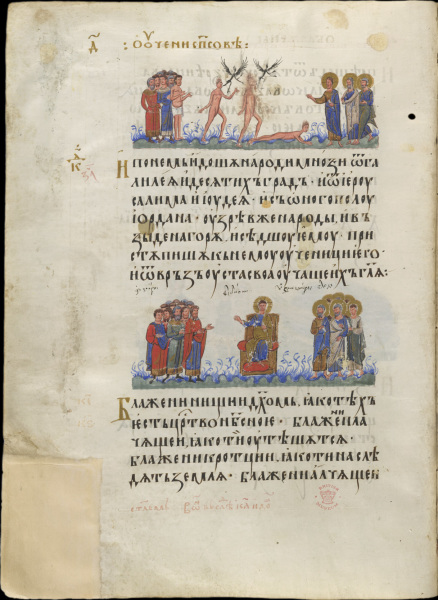 По немь идоша народи мнози ѿ га
лилея и десѧтихъ градъ · и ѿ іероу
салима и іоудея · и съ оного полоу
іордана · оузрѣв же народы, и въ
зыде на горѫ, и сѣдшоу емоу · при
стѫпишѫ къ немоу оученици его
и ѿвръзъ оуста своа оучааше ихъ глѧ:
Блажени нищии дх҃омь, іако тѣхъ
есть цр҃тво нб҃сное · блажени пла
чѫщеи, іако ти оутѣшѧтсѧ ·
блажени кротции, іако ти наслѣ
дѧть землѧ · блажени алчѫщеи